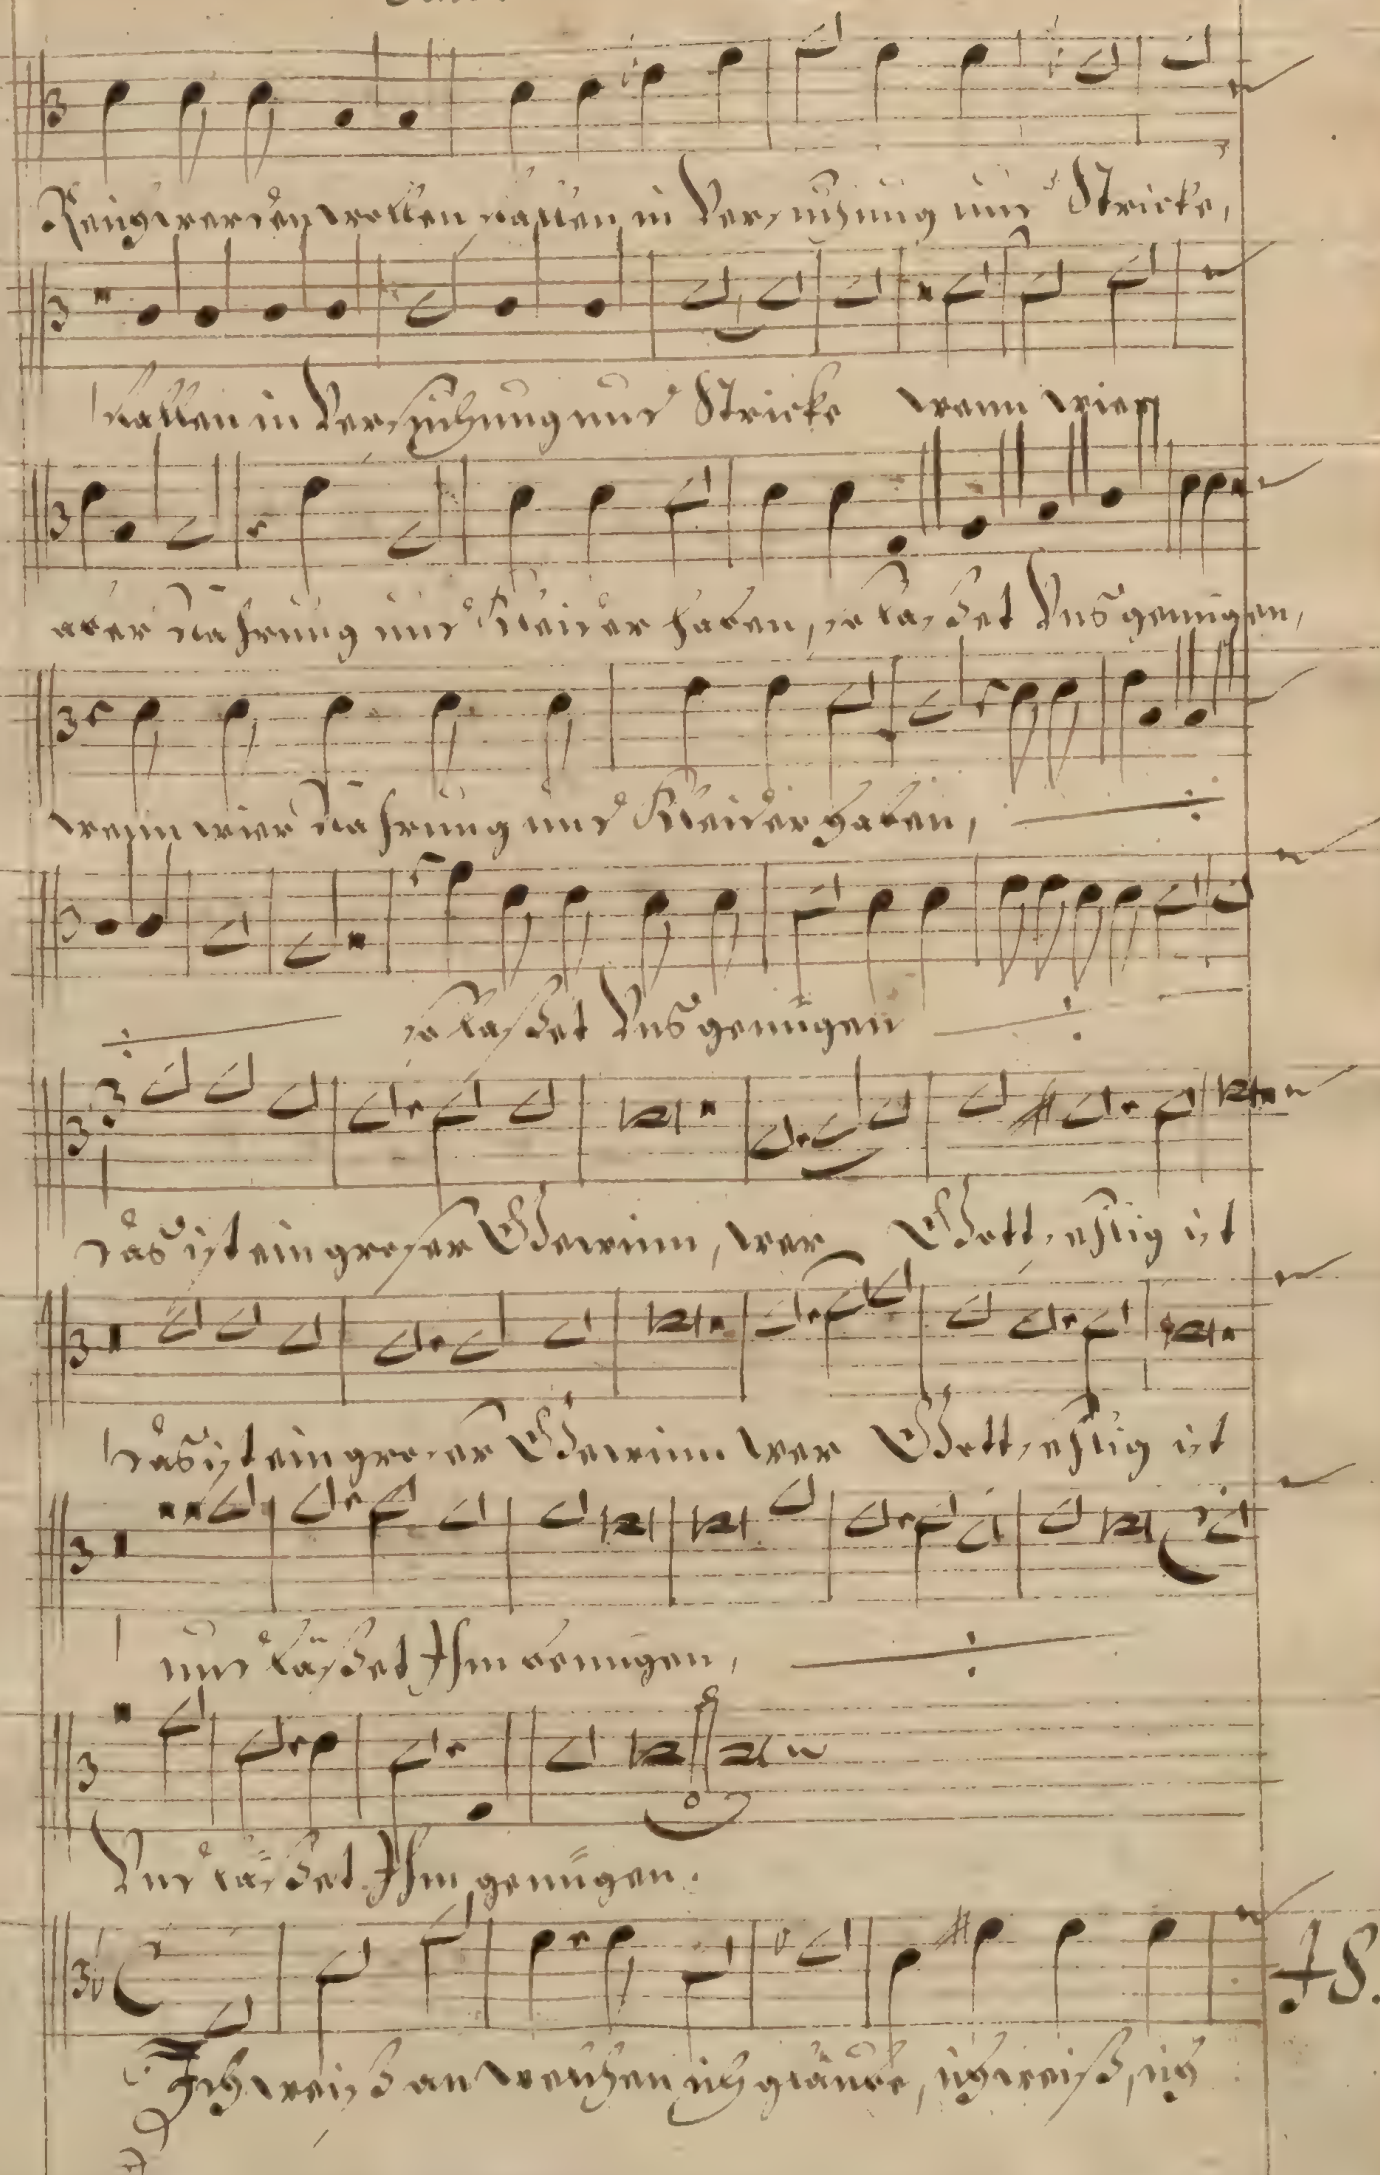 Reich werden wollen fallen in Versuchung und Stricke,
fallen in Versuchung und Stricke wenn wier
aber Nahrung und Kleider haben, so laßet Uns genügen,
wenn wier Nahrung und Kleider haben,
so laßet Uns genügen
Das ist ein großer Gewinn, wer Gottsehlig ist
Das ist ein großer Gewinn wer Gottsehlig ist
und läßet Ihm benügen,
Und läßet Ihm genügen.
48.
Ich weiß an welchen ich gläube, ich weiß, ich